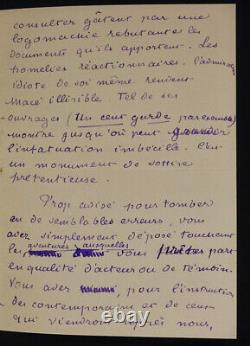 consulter gâtent par une
logomachie rebutante les
documents qu'ils apportent. Les
homélies réactionnaires. l'admiration
idiote de soi même rendent
Macé illisible. Tel de ses
ouvrages (Un cent garde par exemple)
montre jusqu'où peut
l'infatuation imbécile. C'est
un monument de sottise
prétentieuse.
Trop avisé pour tomber
en de semblables erreurs, vous
avez simplement déposé touchant
les aventures auxquelles vous prîtes part
en qualité d'acteur ou de témoin.
Vous avez, pour l'instruction
des contemporains et de ceux
qui viendront après nous,
ebay